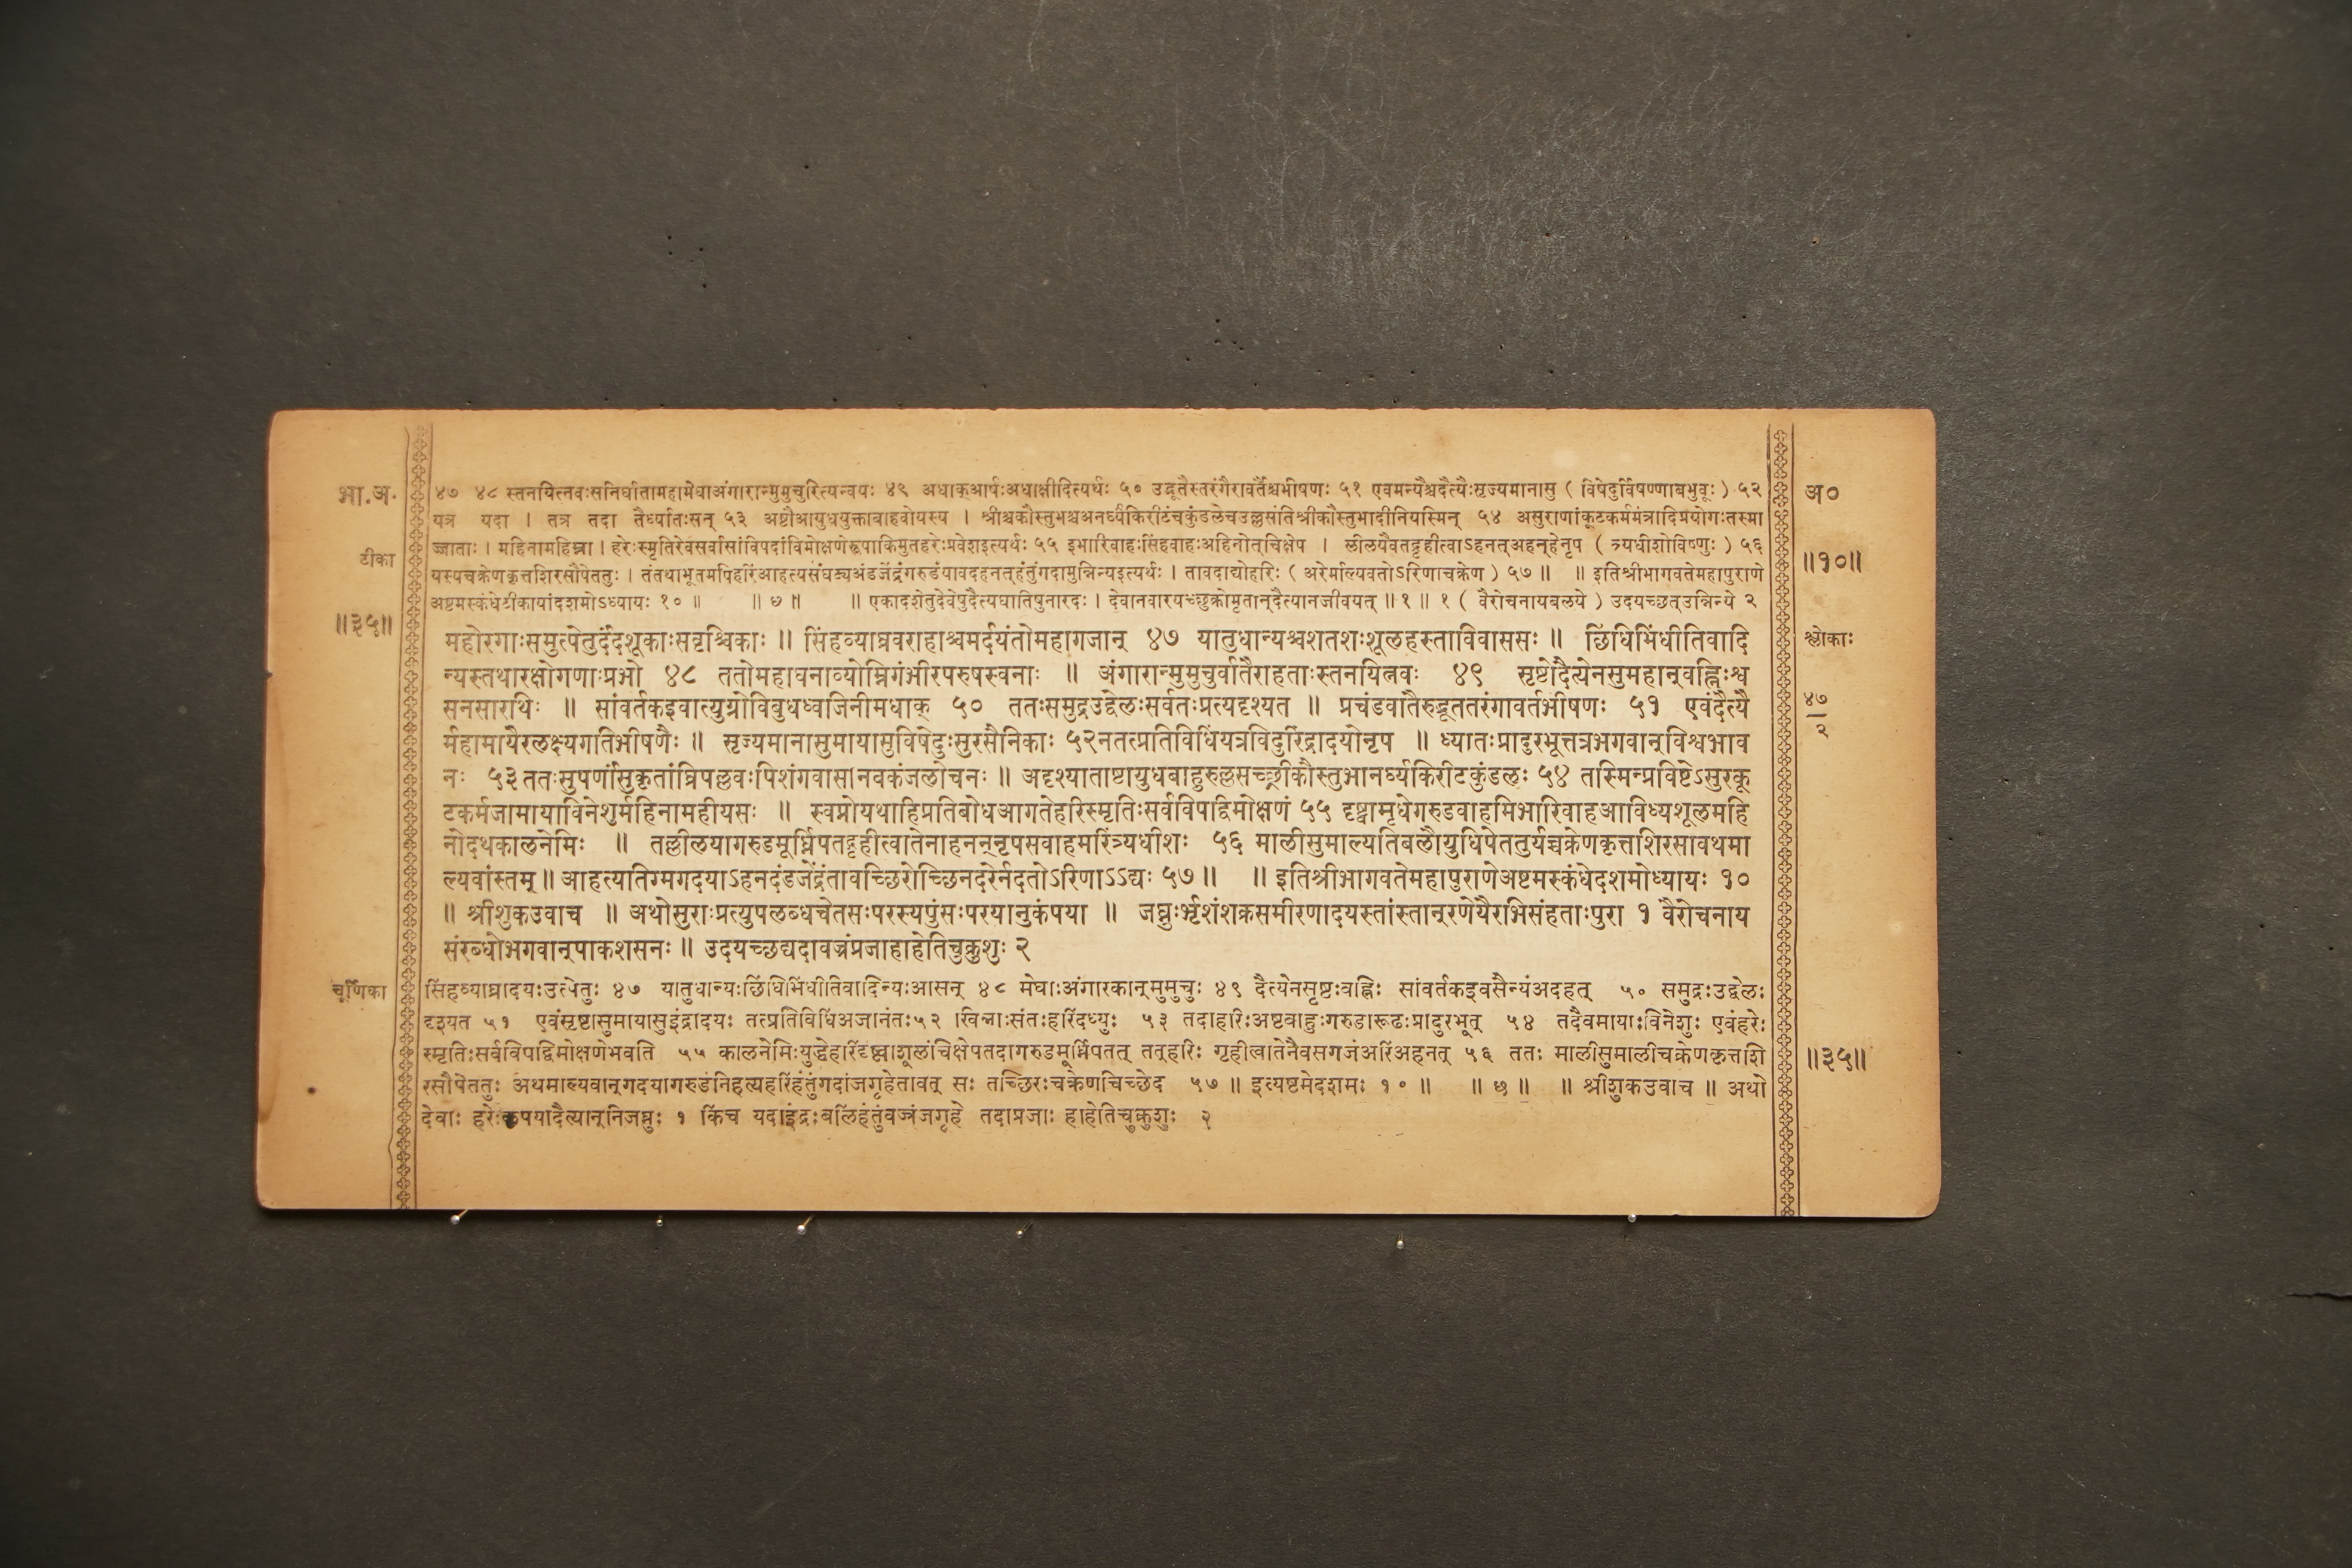 भा.अ.
टीका
॥३५॥
४७ ४८ स्तनयित्नवःसनिर्घातामहामेघाअंगारान्मुमुचुरित्यन्वयः ४९ अधाक्आर्षःअधाक्षीदित्यर्थः ५० उद्धूतैस्तरंगैरावर्तैश्चभीषणः ५१ एवमन्यैश्चदैत्यैःसृज्यमानासु ( विषेदुर्विषण्णाबभुवूः ) ५२
यत्र यदा । तत्र तदा तैर्ध्यातःसन् ५३ अष्टौआयुधयुक्ताबाहवोयस्य । श्रीश्चकौस्तुभश्चअनर्घ्यकिरीटंचकुंडलेचउल्लसंतिश्रीकौस्तुभादीनियस्मिन् ५४ असुराणांकूटकर्ममंत्रादिप्रयोगःतस्मा
ज्जाताः । महिनामहिम्ना । हरेःस्मृतिरेवसर्वासांविपदांविमोक्षणेरूपाकिमुतहरेःप्रवेशइत्यर्थः ५५ इभारिवाहःसिंहवाहःअहिनोत्चिक्षेप । लीलयैवतद्गृहीत्वाऽहनत्अहन्हेनृप ( त्र्यधीशोविष्णुः ) ५६
यस्यचक्रेणकृत्तशिरसौपेततुः । तंतथाभूतमपिहरिंआहत्यसंघट्यअंडजेंद्रंगरुडंयावदहनत्हंतुंगदामुन्निन्यइत्यर्थः । तावदाद्योहरिः ( अरेर्माल्यवतोऽरिणाचक्रेण ) ५७ ॥ ॥ इतिश्रीभागवतेमहापुराणे
अष्टमस्कंधेटीकायांदशमोऽध्यायः १० ॥ ॥ ७ ॥ ॥ एकादशेतुदेवेषुदैत्यघातिषुनारदः । देवानवारयच्छुक्रोमृतान्दैत्यानजीवयत् ॥ १ ॥ १ ( वैरोचनायबलये ) उदयच्छत्उन्निन्ये २
महोरगाःसमुत्पेतुर्दंदशूकाःसवृश्चिकाः ॥ सिंहव्याघ्रवराहाश्चमर्दयंतोमहागजान् ४७ यातुधान्यश्चशतशःशूलहस्ताविवाससः ॥ छिंधिभिंधीतिवादि
न्यस्तथारक्षोगणाःप्रभो ४८ ततोमहाघनाव्योम्निगंभीरपरुषस्वनाः ॥ अंगारान्मुमुचुर्वातैराहताःस्तनयित्नवः ४९ सृष्टोदैत्येनसुमहान्वह्निःश्व
सनसारथिः ॥ सांवर्तकइवात्युग्रोविबुधध्वजिनीमधाक् ५० ततःसमुद्रउद्वेलःसर्वतःप्रत्यदृश्यत ॥ प्रचंडवातैरुद्धूततरंगावर्तभीषणः ५१ एवंदैत्यै
र्महामायैरलक्ष्यगतिभीषणैः ॥ सृज्यमानासुमायासुविषेदुःसुरसैनिकाः ५२नतत्प्रतिविधिंयत्रविदुरिंद्रादयोनृप ॥ ध्यातःप्रादुरभूत्तत्रभगवान्विश्वभाव
नः ५३ ततःसुपर्णांसकृतांघ्रिपल्लवःपिशंगवासानवकंजलोचनः ॥ अदृश्यताष्टायुधबाहुरुल्लसच्छ्रीकौस्तुभानर्घ्यकिरीटकुंडलः ५४ तस्मिन्प्रविष्टेऽसुरकू
टकर्मजामायाविनेशुर्महिनामहीयसः ॥ स्वप्नोयथाहिप्रतिबोधआगतेहरिस्मृतिःसर्वविपद्विमोक्षणं ५५ दृष्ट्वामृधेगरुडवाहमिभारिवाहआविध्यशूलमहि
नोदथकालनेमिः ॥ तल्लीलयागरुडमूर्ध्निपतद्गृहीत्वातेनाहनन्नृपसवाहमरिंत्र्यधीशः ५६ मालीसुमाल्यतिबलौयुधिपेततुर्यच्चक्रेणकृत्तशिरसावथमा
ल्यवांस्तम् ॥ आहत्यतिग्मगदयाऽहनदंडजेंद्रंतावच्छिरोच्छिनदरेर्नदतोऽरिणाऽऽद्यः ५७ ॥ ॥ इतिश्रीभागवतेमहापुराणेअष्टमस्कंधेदशमोध्यायः १०
॥ श्रीशुकउवाच ॥ अथोसुराःप्रत्युपलब्धचेतसःपरस्यपुंसःपरयानुकंपया ॥ जघ्नुर्भृशंशक्रसमीरणादयस्तांस्तान्रणेयैरभिसंहताःपुरा १ वैरोचनाय
संरब्धोभगवान्पाकशसनः ॥ उदयच्छद्यदावज्रंप्रजाहाहेतिचुक्रुशुः २
चूर्णिका
सिंहव्याघ्रादयःउत्पेतुः ४७ यातुधान्यःछिंधिभिंधीतिवादिन्यःआसन् ४८ मेघाःअंगारकान्मुमुचुः ४९ दैत्येनसृष्टःवह्निः सांवर्तकइवसैन्यंअदहत् ५० समुद्रःउद्वेलः
दृश्यत ५१ एवंसृष्टासुमायासुइंद्रादयः तत्प्रतिविधिंअजानंतः५२ खिन्नाःसंतःहरिंदध्युः ५३ तदाहरिःअष्टबाहुःगरुडारूढःप्रादुरभूत् ५४ तदैवमायाःविनेशुः एवंहरेः
स्मृतिःसर्वविपद्विमोक्षणेभवति ५५ कालनेमिःयुद्धेहरिंदृष्ट्वाशूलंचिक्षेपतदागरुडमूर्ध्निपतत् तत्हरिः गृहीत्वातेनैवसगजंअरिंअहनत् ५६ ततः मालीसुमालीचक्रेणकृत्तशि
रसौपेततुः अथमाल्यवान्गदयागरुडंनिहत्यहरिंहंतुंगदांजगृहेतावत् सः तच्छिरःचक्रेणचिच्छेद ५७ ॥ इत्यष्टमेदशमः १० ॥ ॥ छ ॥ ॥ श्रीशुकउवाच ॥ अथो
देवाः हरेःकृपयादैत्यान्निजघ्नुः १ किंच यदाइंद्रःबलिंहंतुंवज्रंजगृहे तदाप्रजाः हाहेतिचुक्रुशुः २
अ०
॥१०॥
श्लोकाः
४७
२
॥३५॥